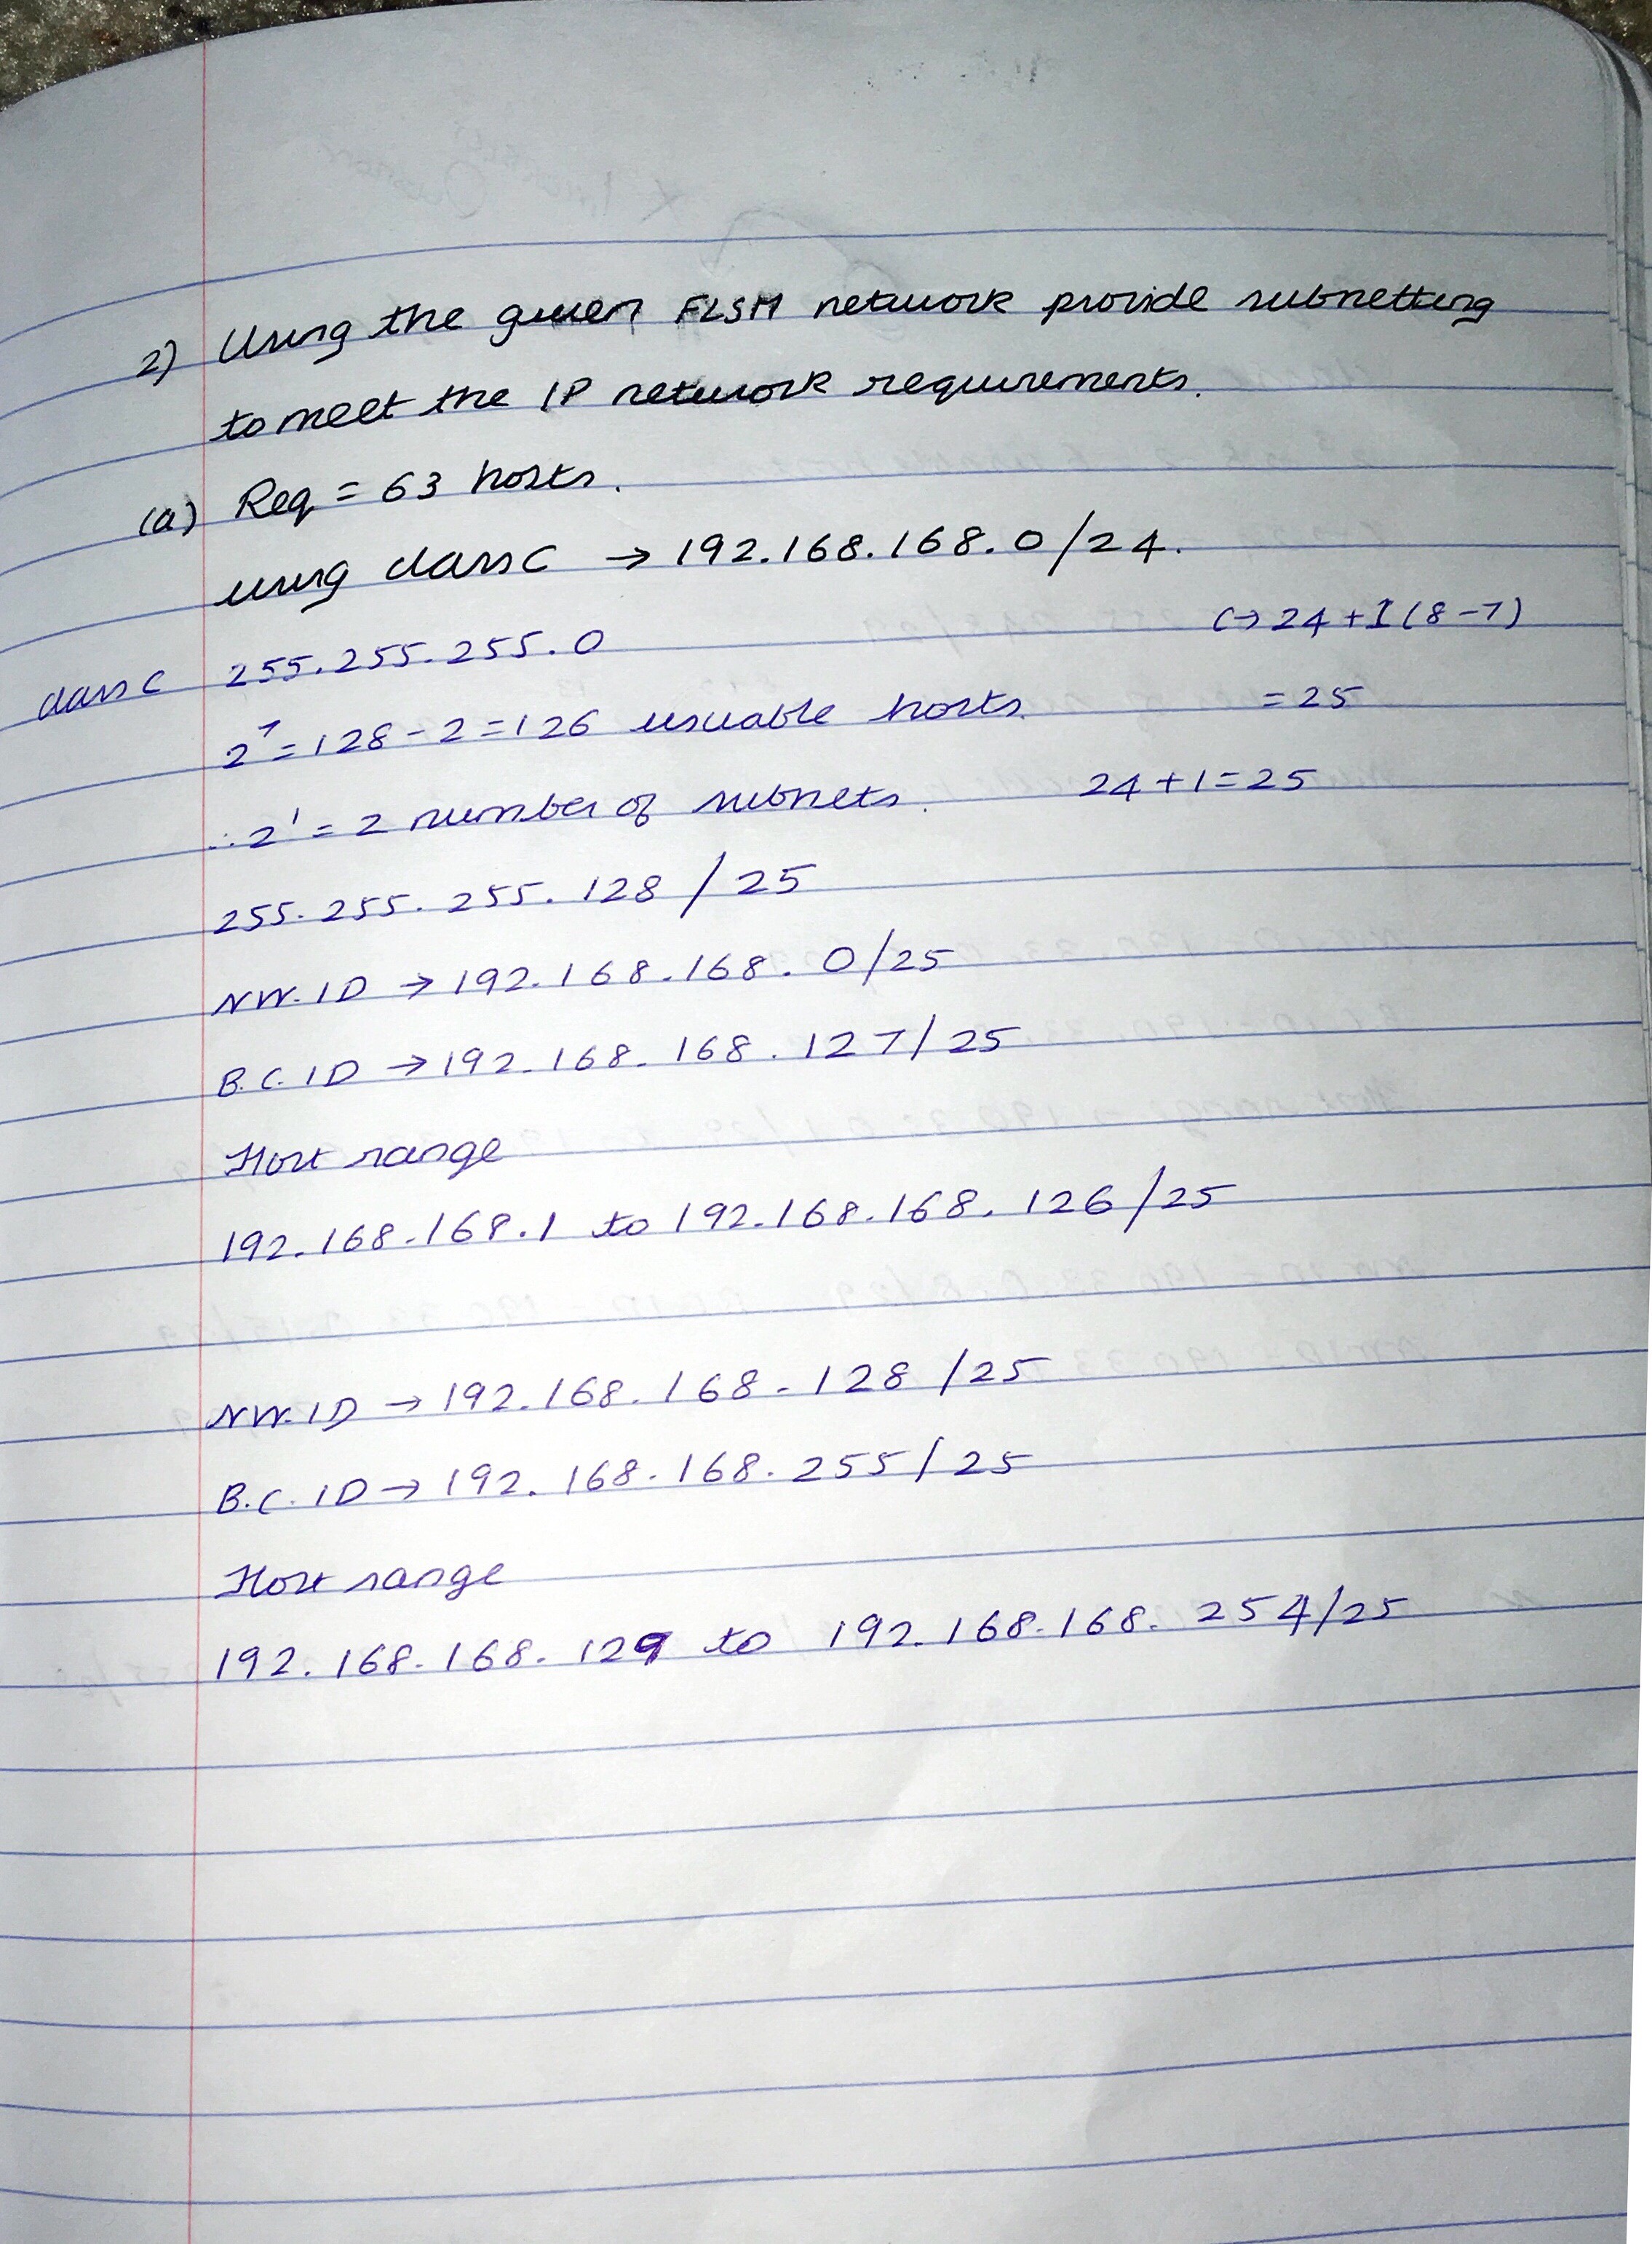 2) Using the given FLSM network provide subnetting
to meet the IP network requirements.
(a) Req = 63 hosts.
using class C → 192.168.168.0/24.
class C 255.255.255.0 C → 24 + 1 (8-7)
2⁷ = 128 - 2 = 126 usuable hosts. = 25
∴ 2¹ = 2 number of subnets. 24 + 1 = 25
255.255.255.128 / 25
NW.ID → 192.168.168.0/25
B.C.ID → 192.168.168.127/25
Host range
192.168.168.1 to 192.168.168.126/25
NW.ID → 192.168.168.128 /25
B.C.ID → 192.168.168.255/25
Host range
192.168.168.129 to 192.168.168.254/25